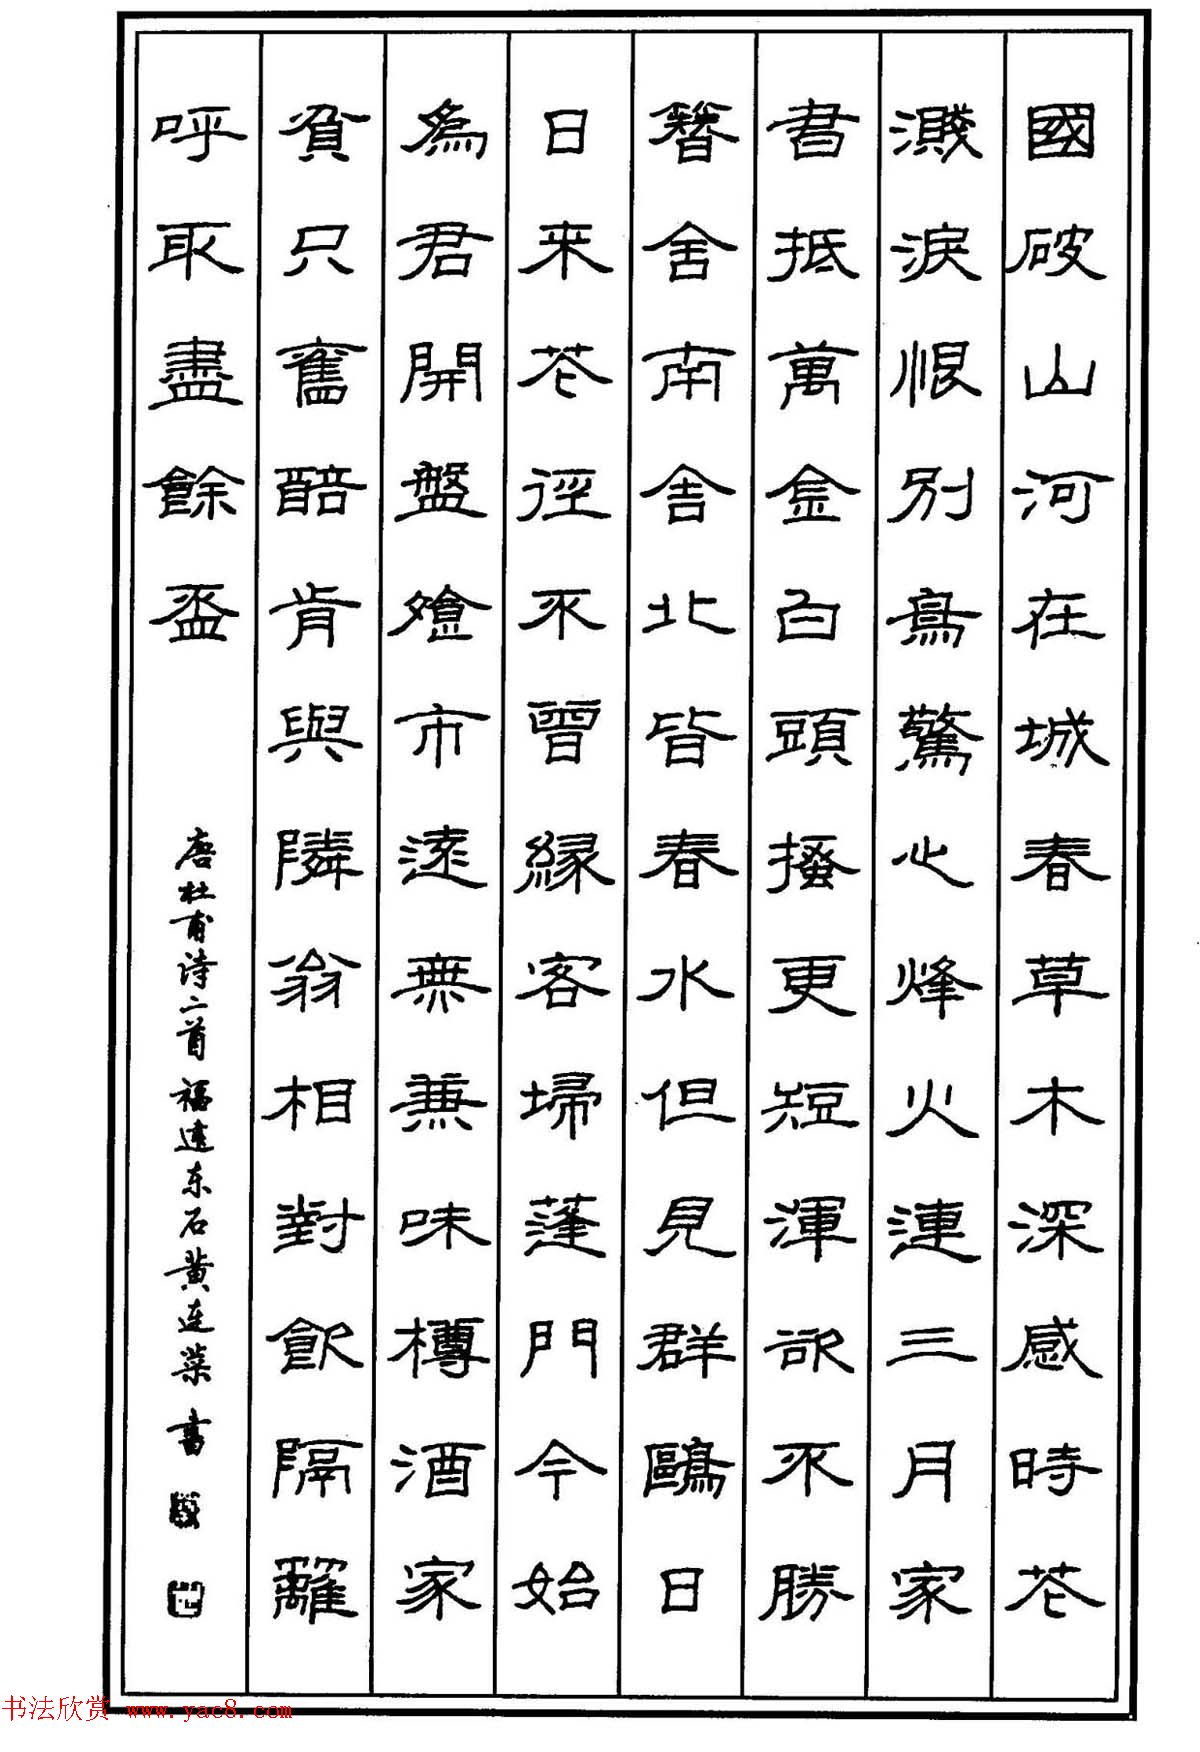 國破山河在城春草木深感時花
濺淚恨別鳥驚心烽火連三月家
書抵萬金白頭搔更短渾欲不勝
簪舍南舍北皆春水但見群鷗日
日來花徑不曾緣客掃蓬門今始
為君開盤飱市遠無兼味樽酒家
貧只舊醅肯與隣翁相對飲隔籬
呼取盡餘盃
唐杜甫诗二首 福建东石黄连菜書
书法欣赏 www.yac8.com